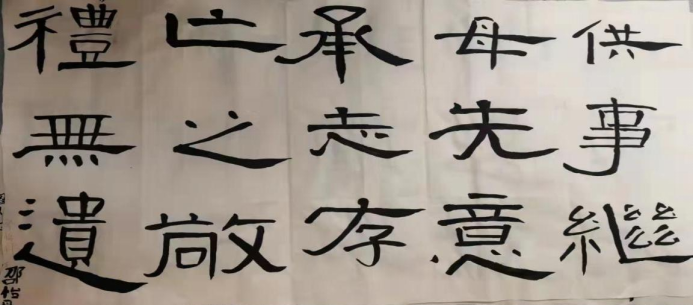 供事繼
母先意
承志存
亡之敬
禮無遺